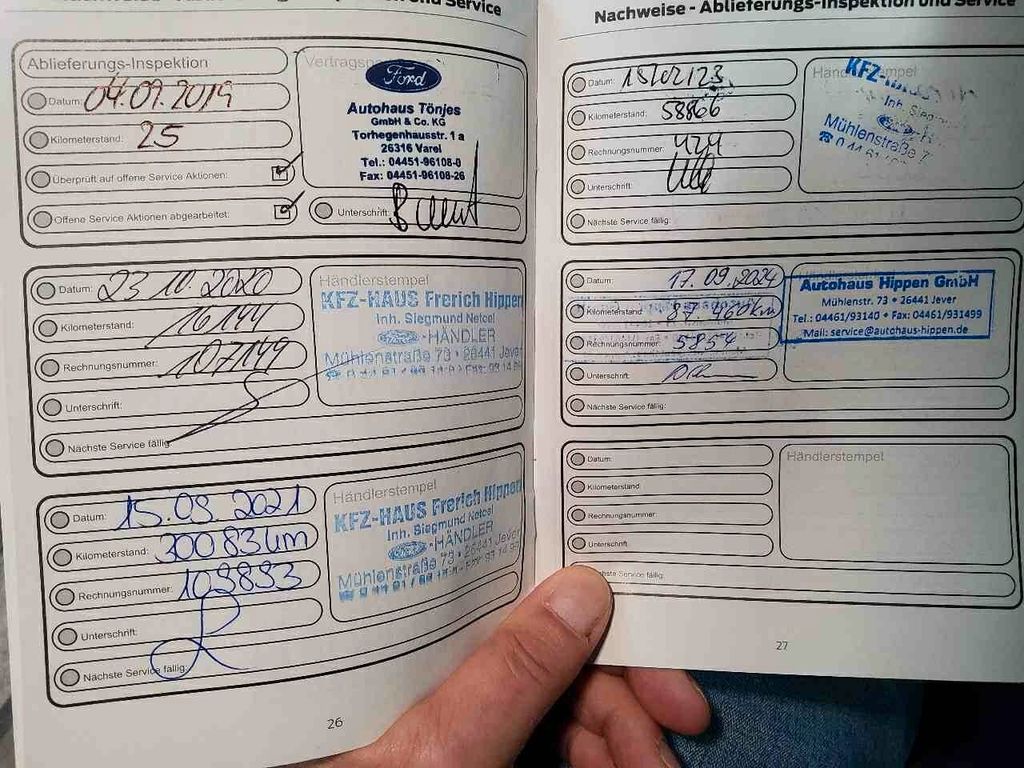 Service
Ablieferungs-Inspektion
Datum: 04.09.2019
Kilometerstand: 25
Überprüft auf offene Service Aktionen:
Offene Service Aktionen abgearbeitet:
Ford
Autohaus Tönjes
GmbH & Co. KG
Torhegenhausstr. 1 a
26316 Varel
Tel.: 04451-96108-0
Fax: 04451-96108-26
Unterschrift:
Datum: 23.10.2020
Kilometerstand: 16144
Rechnungsnummer: 107149
Unterschrift:
Nächste Service fällig:
Händlerstempel
KFZ-HAUS Frerich Hippen
Inh. Siegmund Netcel
Ford-HÄNDLER
Mühlenstraße 73 • 26441 Jever
Datum: 15.09.2021
Kilometerstand: 30083 km
Rechnungsnummer: 109893
Unterschrift:
Nächste Service fällig:
Händlerstempel
KFZ-HAUS Frerich Hippen
Inh. Siegmund Netcel
Ford-HÄNDLER
Mühlenstraße 73 • 26441 Jever
26
Nachweise - Ablieferungs-Inspektion und Service
Datum: 15/02/23
Kilometerstand: 58866
Rechnungsnummer: 424
Unterschrift:
Nächste Service fällig:
KFZ-
Inh. Siegm
Mühlenstraße 7
Datum: 17.09.2024
Kilometerstand: 87 460km
Rechnungsnummer: 5854
Unterschrift:
Nächste Service fällig:
Autohaus Hippen GmbH
Mühlenstr. 73 • 26441 Jever
Tel.: 04461/93140 • Fax: 04461/931499
Mail: service@autohaus-hippen.de
Datum:
Kilometerstand:
Rechnungsnummer:
Unterschrift:
Service fällig:
Händlerstempel
27